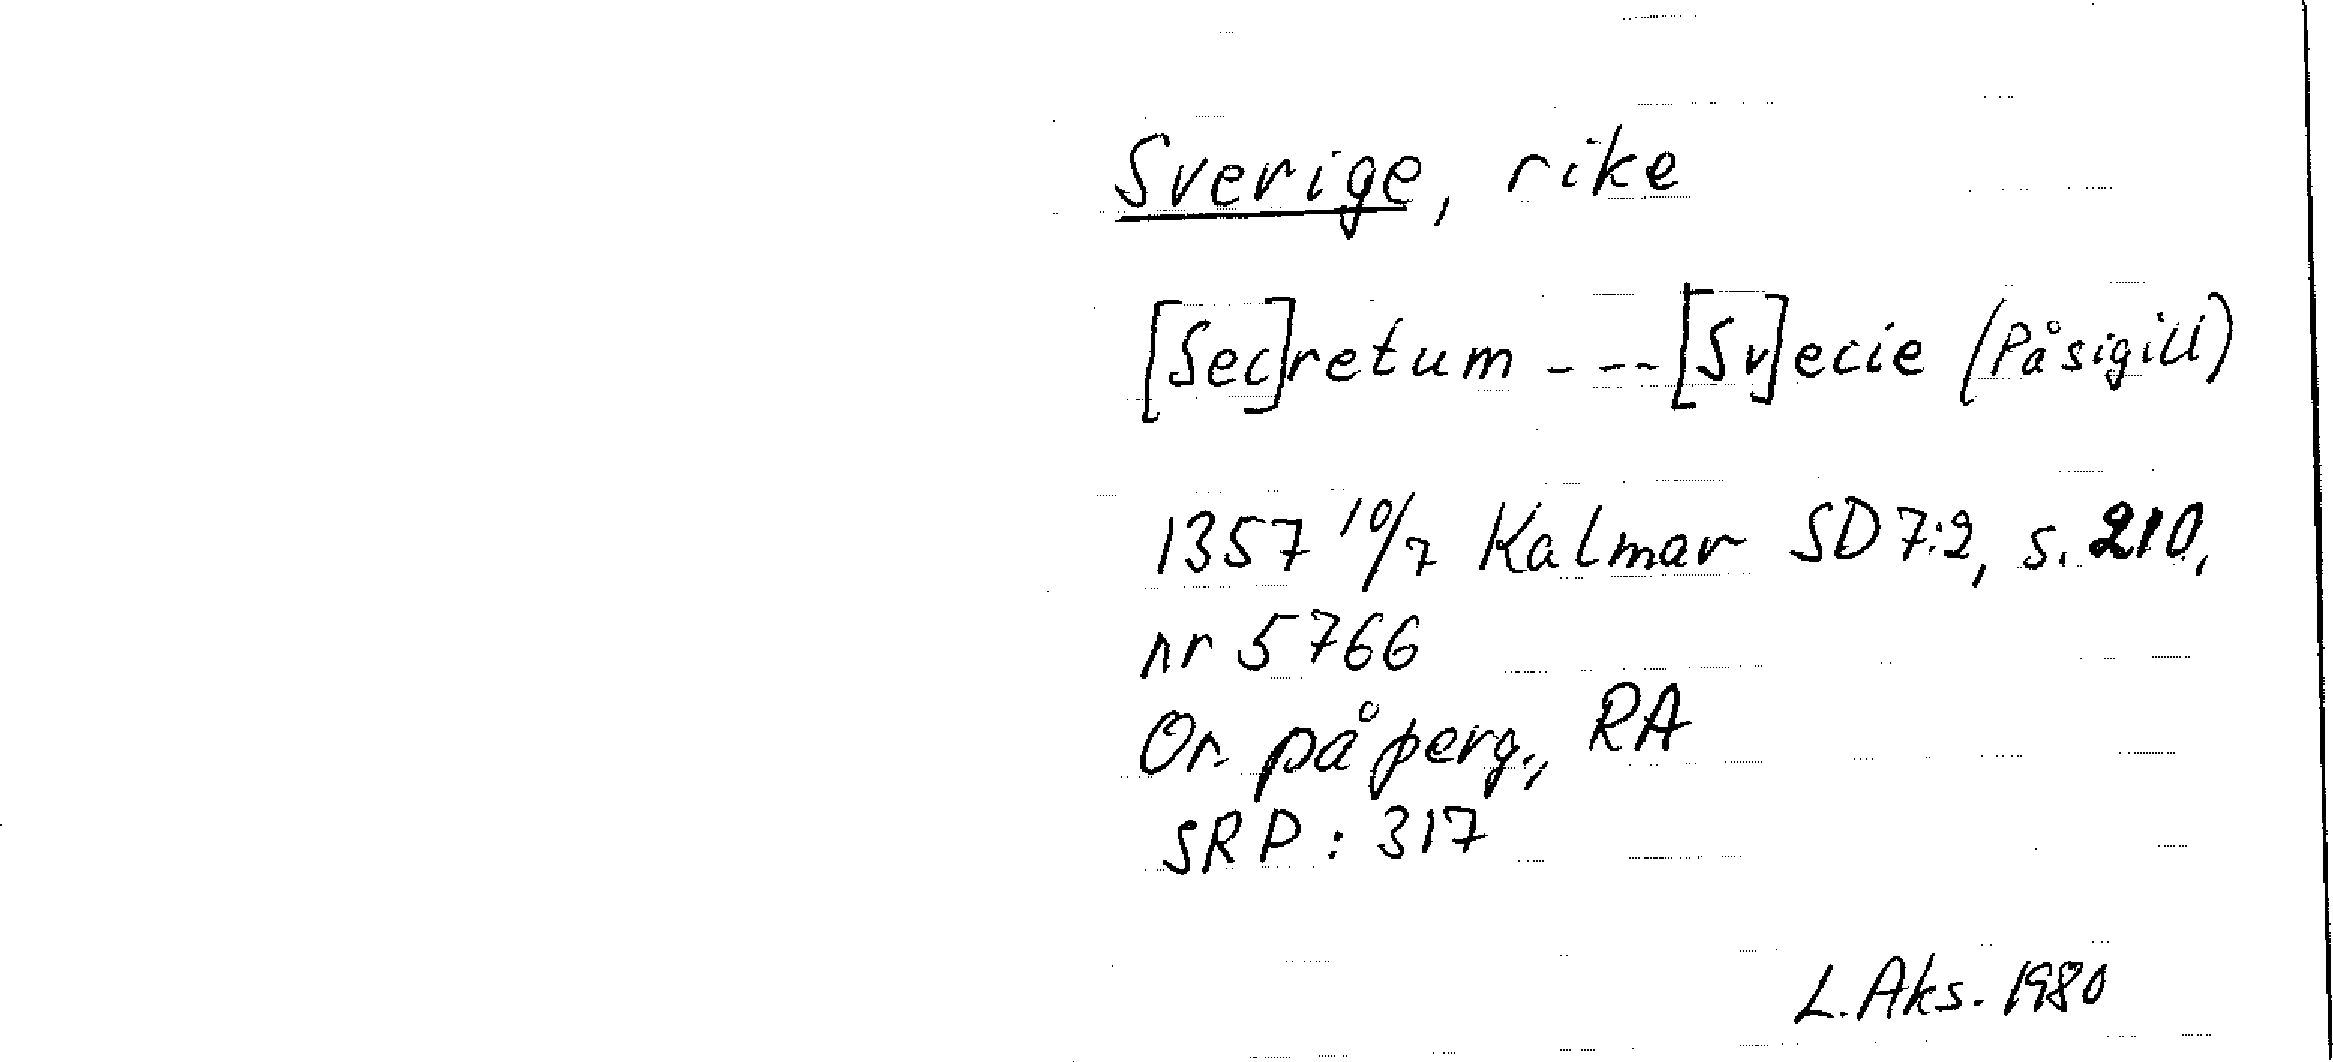 Sverige, rike
[Sec]retum - - - - [Sv]ecie (Påsigill)
1357 10/7 Kalmar SD 7:2, s. 210,
nr 5766
Or. på perg., RA
SRP: 317
L. Aks. 1980